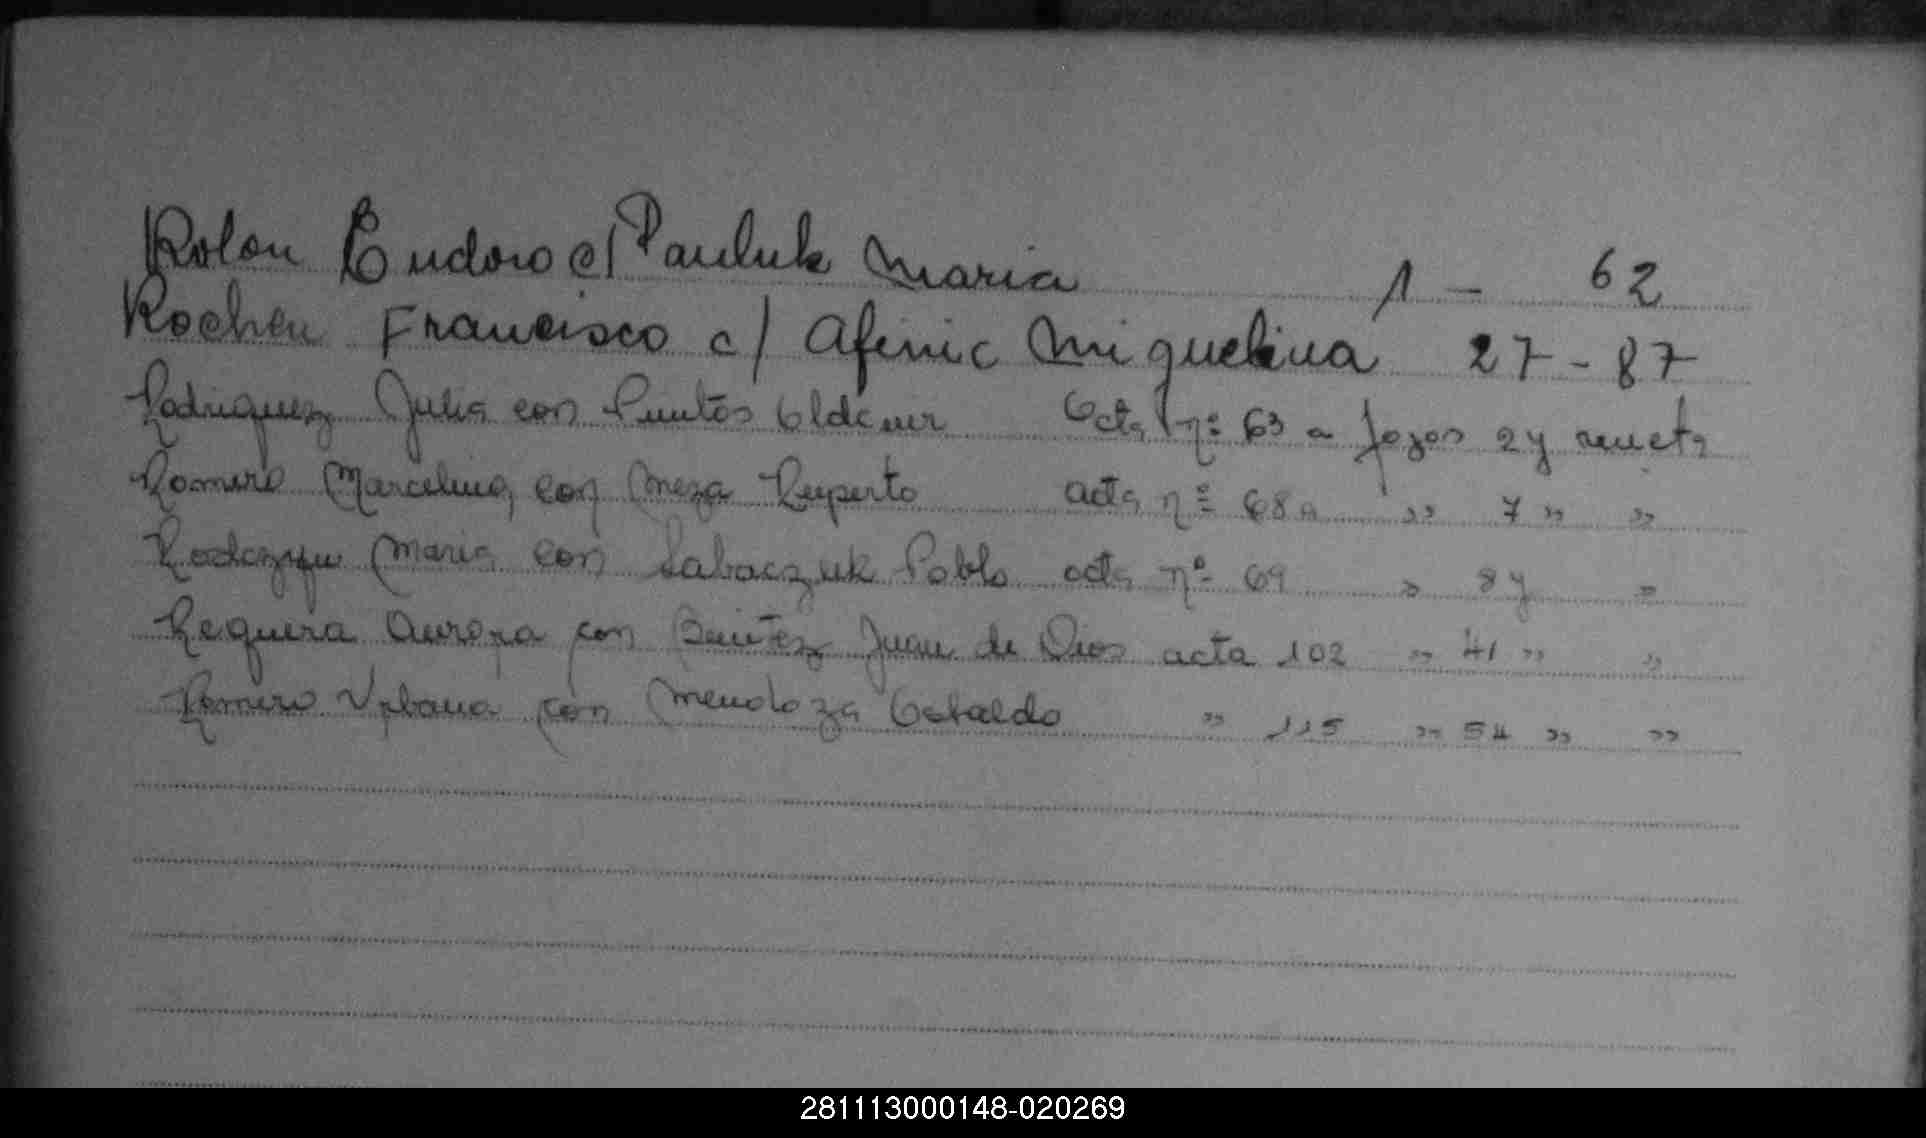 Rolon Eudoro c/ Pauluk Maria 1 - 62
Rochen Francisco c/ Afenic Miguelina 27 - 87
Rodriguez Julia con Puntos Aldemir Acta nº 63 a fozas 2 y vuelta
Romero Marcelina con Meza Ruperto acta nº 68 a " 7 " "
Maria con Sabaczuk Pablo acta nº 69 " 8 y "
Requera Aurora con Benitez Juan de Dios acta 102 " 41 " "
Romero Urbana con Mendoza Osbaldo " 115 " 54 " "
281113000148-020269